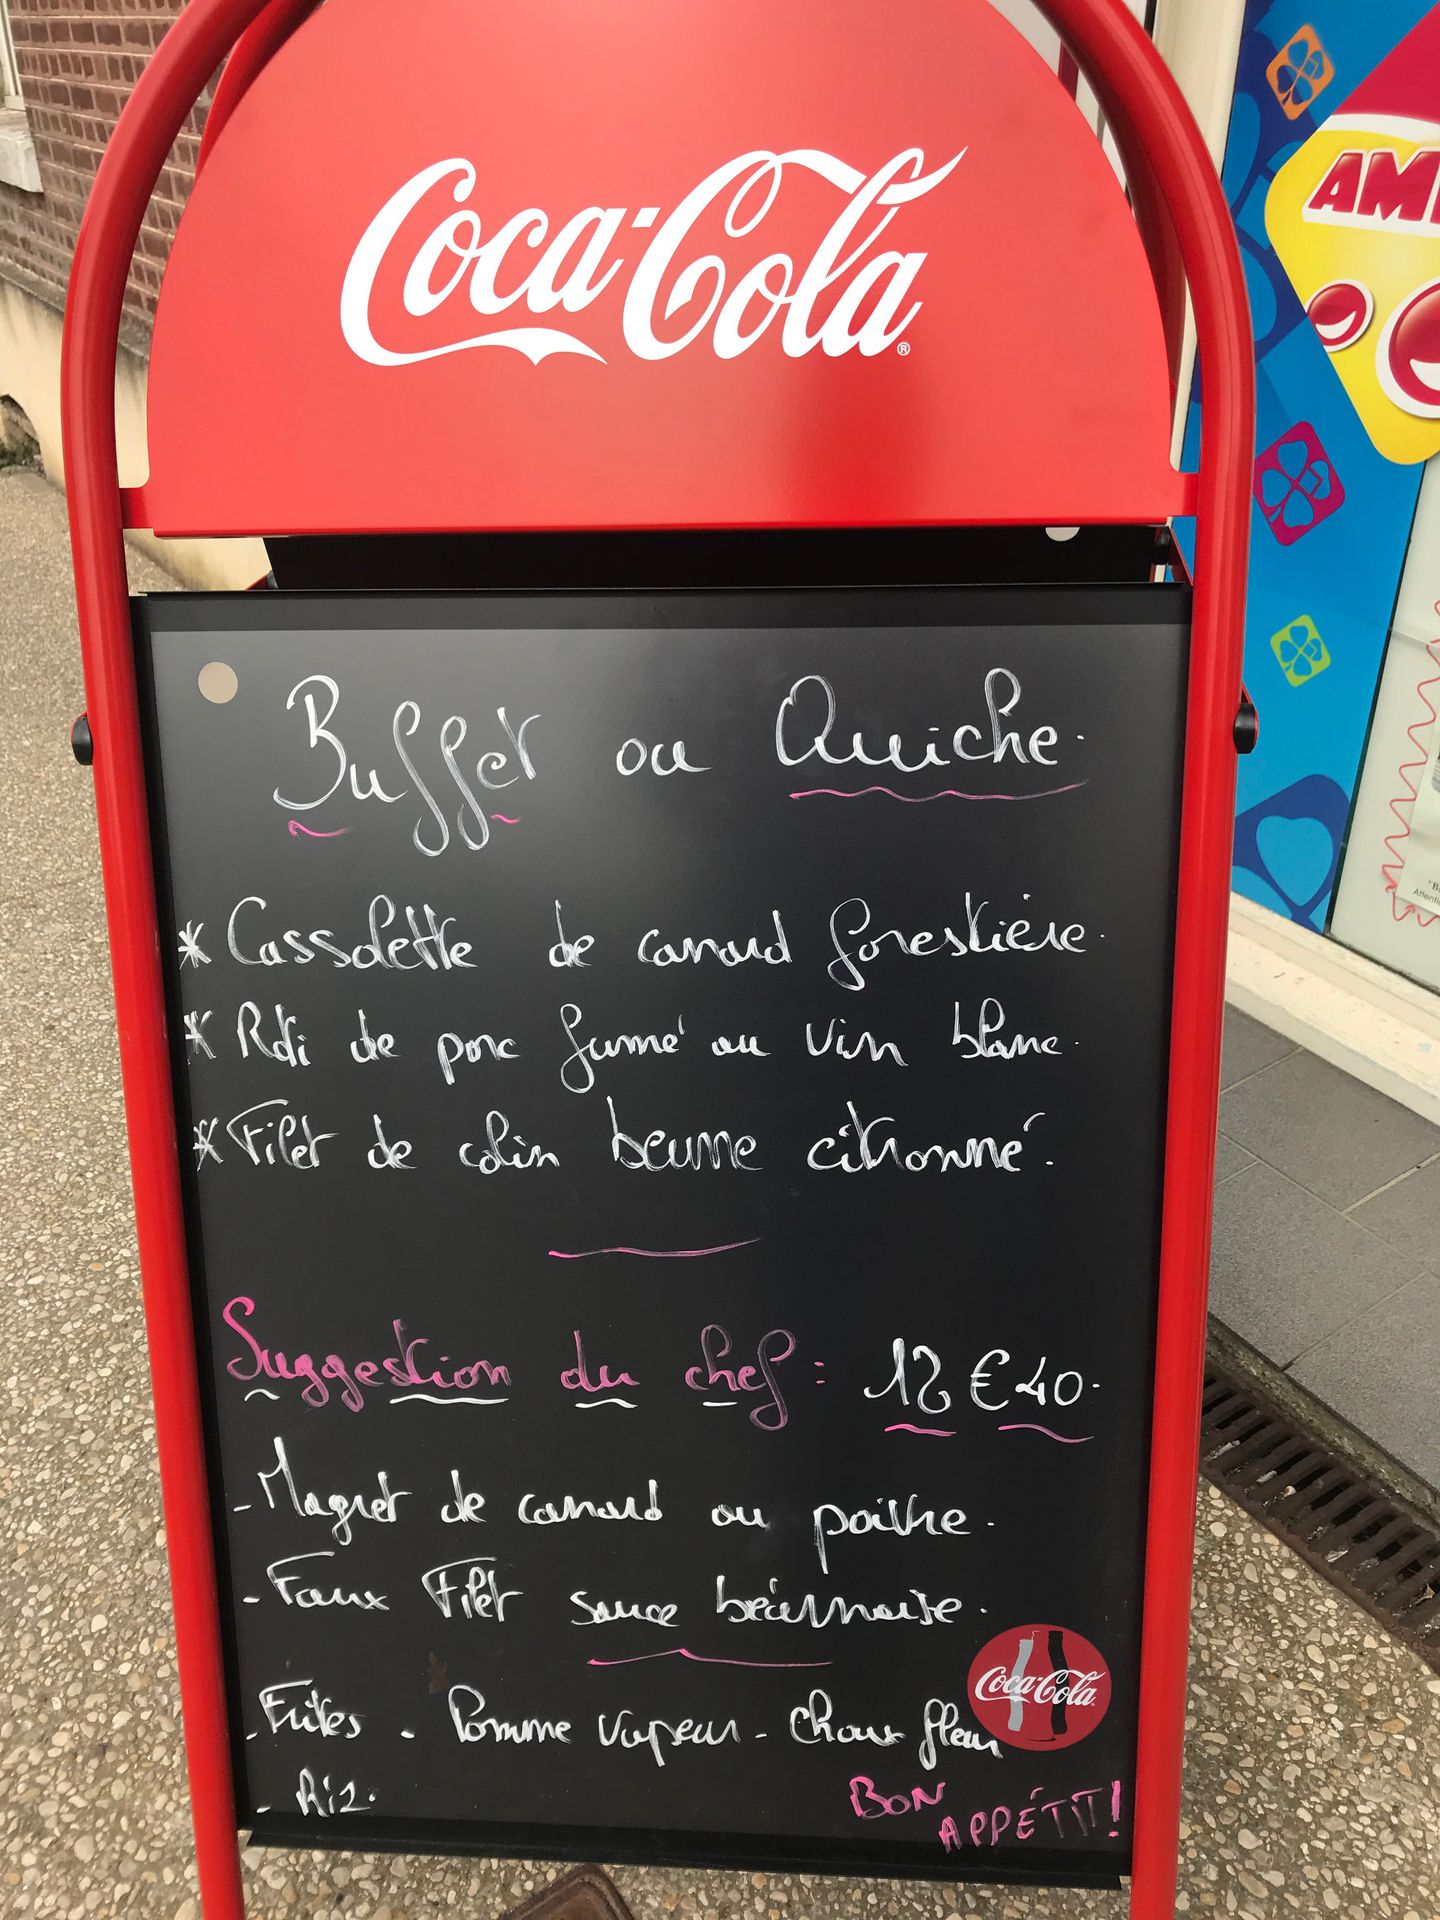 Coca-Cola®
AMI
Buffet ou Quiche.
* Cassolette de canard forestière.
* Roti de porc fumé au vin blanc.
* Filet de colin beurre citronné.
Suggestion du chef : 12 € 40.
- Magret de canard au poivre.
- Faux Filet sauce béarnaise.
- Frites - Pomme vapeur - Choux fleur
Coca-Cola
- Riz.
BON
APPÉTIT!